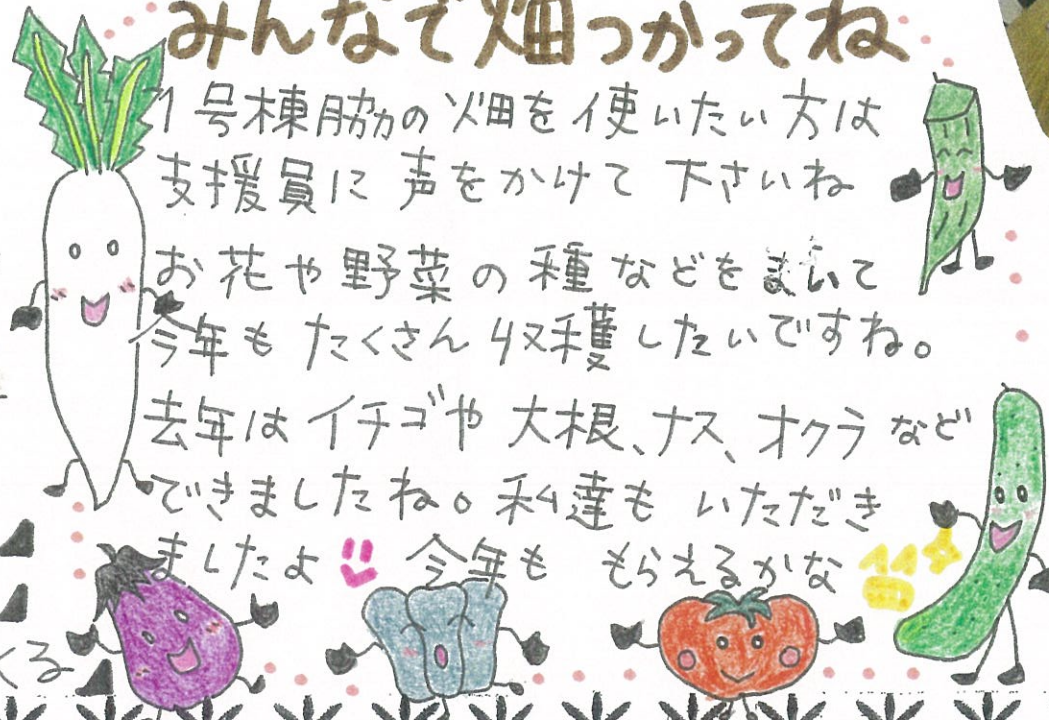 みんなで畑つかってね
1号棟脇の畑を使いたい方は
支援員に声をかけて下さいね
お花や野菜の種などをまいて
今年もたくさん収穫したいですね。
去年はイチゴや大根、ナス、オクラなど
できましたね。私達もいただき
ましたよ 今年ももらえるかな
くる